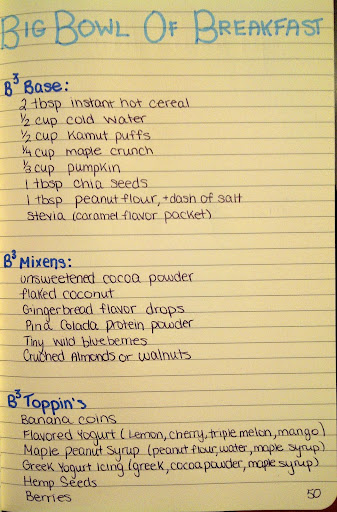 Big Bowl Of Breakfast
B³ Base:
2 tbsp instant hot cereal
½ cup cold water
½ cup Kamut puffs
¼ cup maple crunch
⅓ cup pumpkin
1 tbsp chia seeds
1 tbsp peanut flour, + dash of salt
Stevia (caramel flavor packet)
B³ Mixens:
unsweetened cocoa powder
flaked coconut
Gingerbread flavor drops
Pina Colada Protein powder
Tiny wild blueberries
Cruched Almonds or walnuts
B³ Toppin's
Banana coins
Flavored Yogurt (Lemon, cherry, triple melon, mango)
Maple Peanut Syrup (peanut flour, water, maple syrup)
Greek Yogurt Icing (greek, cocoa powder, maple syrup)
Hemp Seeds
Berries
50